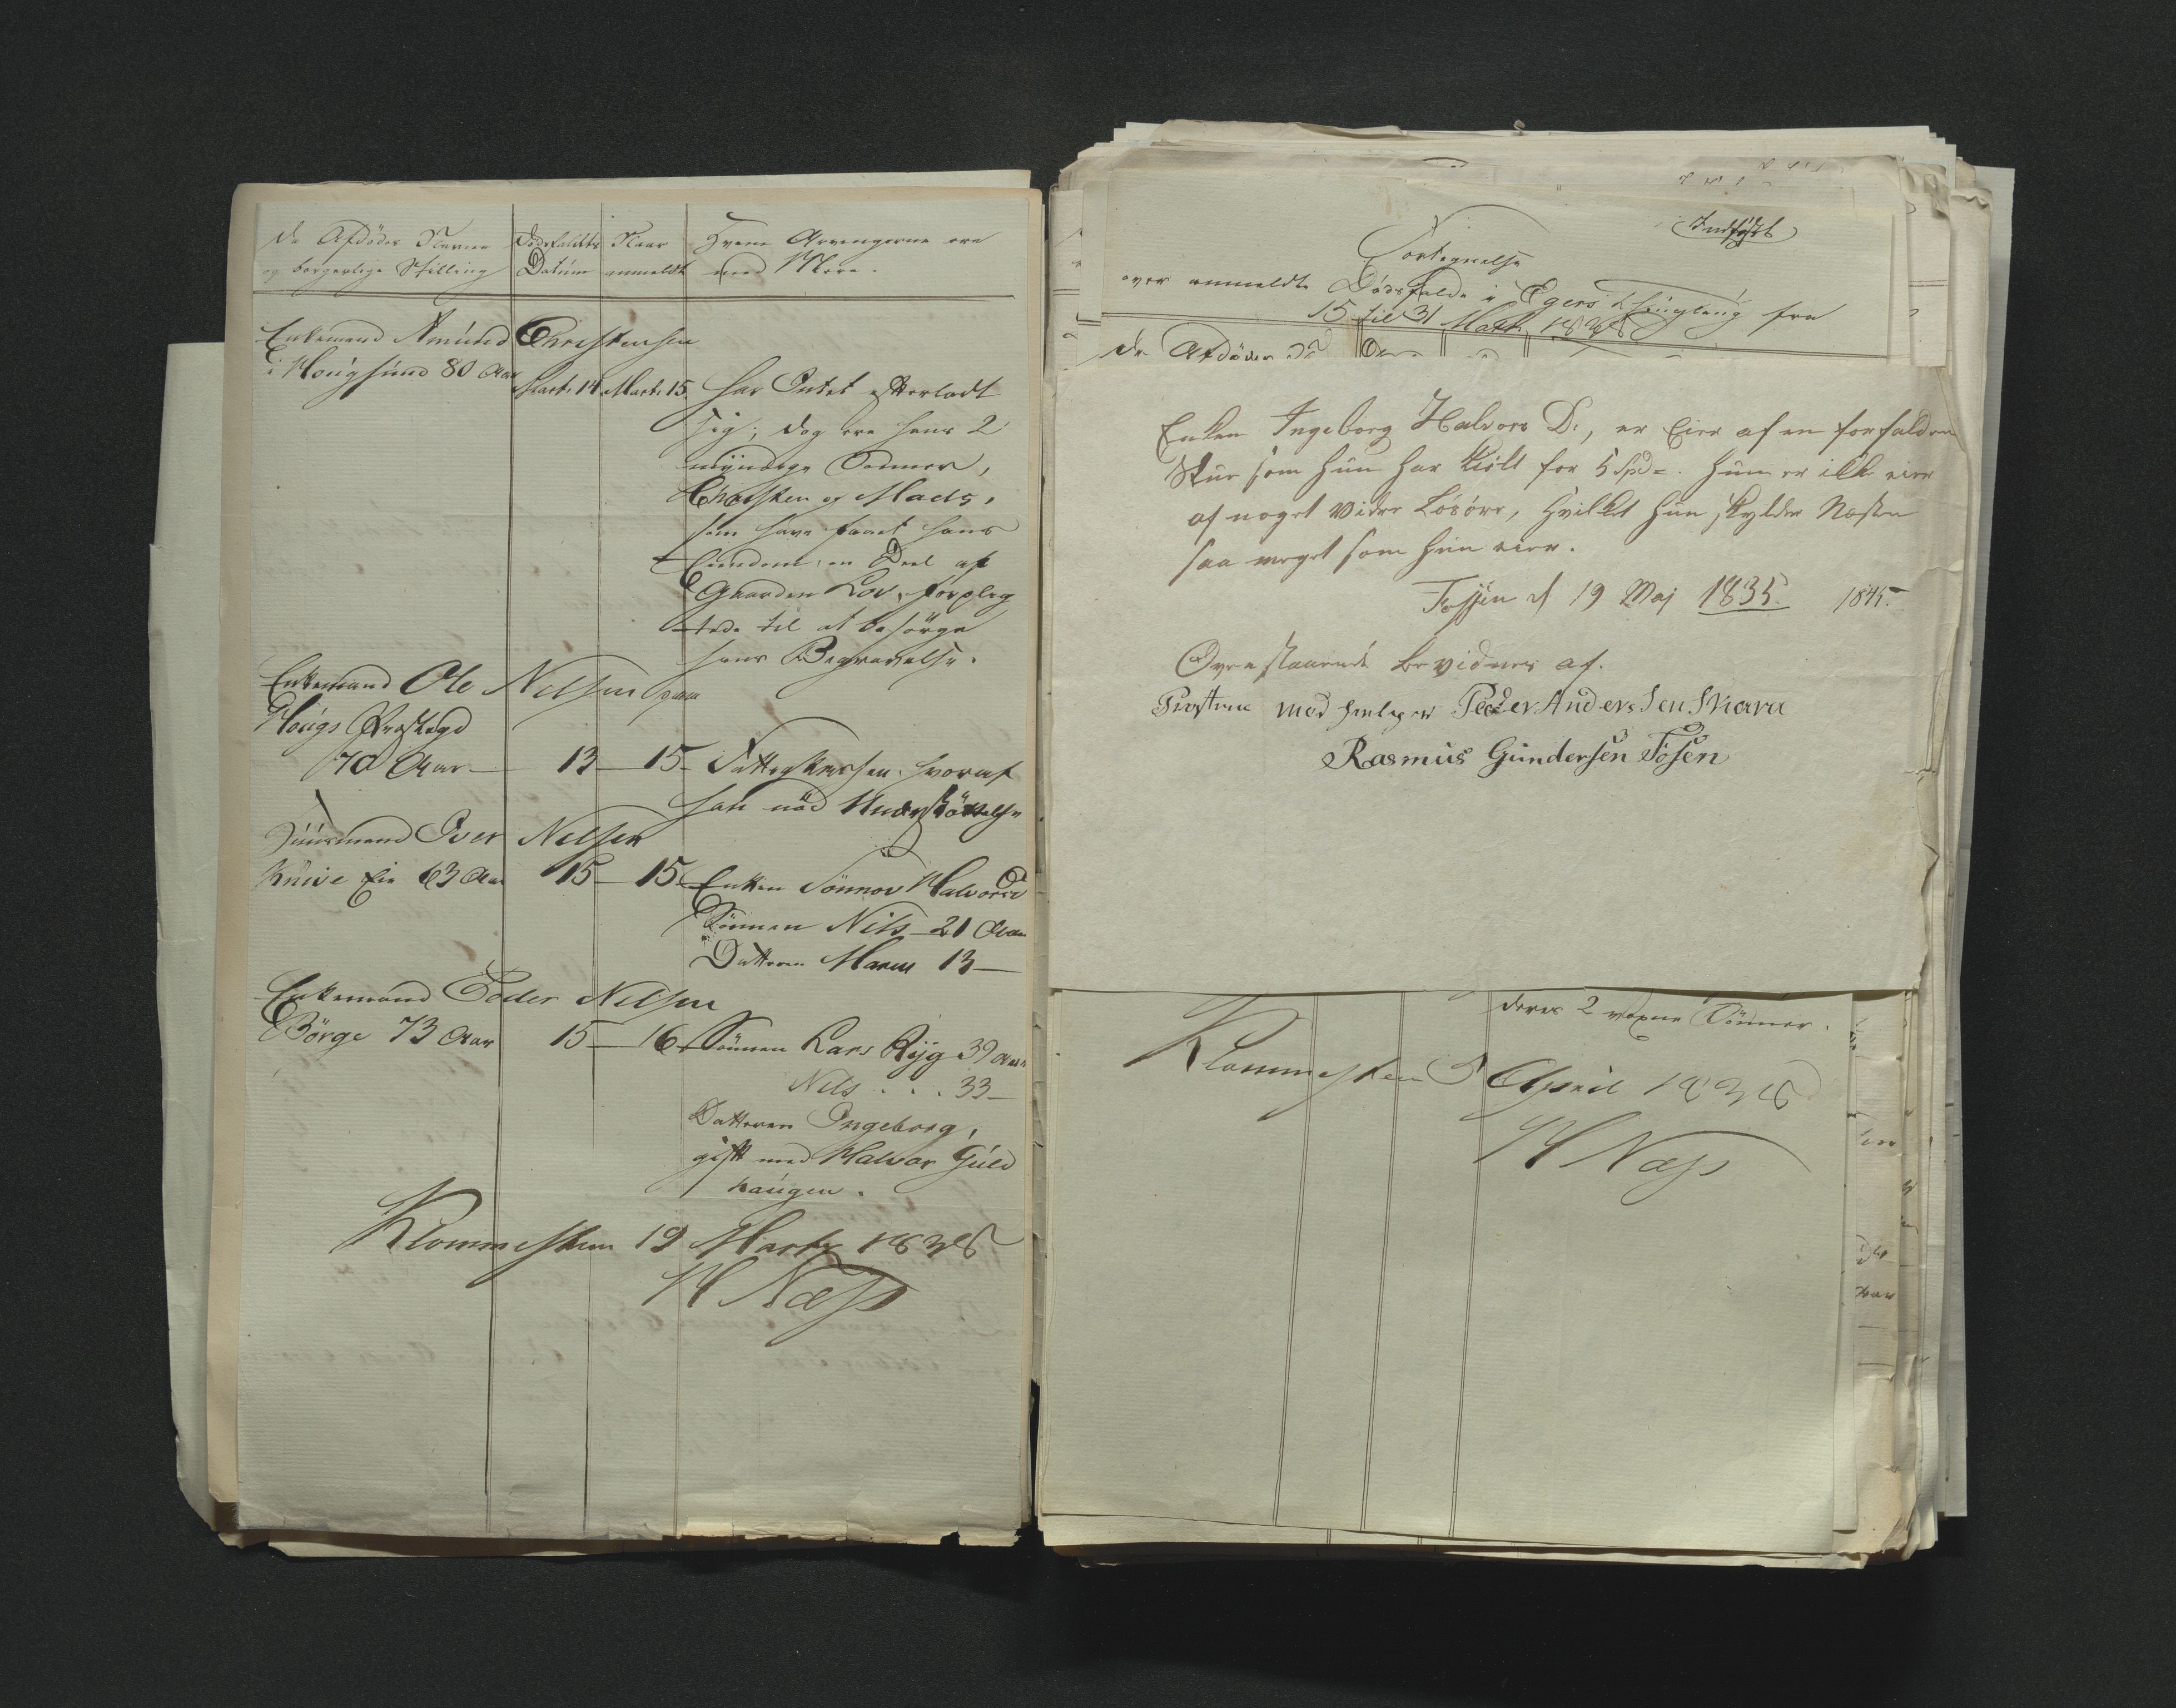 De Afdødes Navne
og borgerlige Stilling
Dödsfaldets
Datum
Naar
anmeldt
Hvem Arvingerne ere
med Mere.
Enkemand Amund Christensen
i Hougsund 80 Aar
Marts 14 Marts 15 har Intet efterladt
sig; dog ere hans 2
myndige Sönner,
Christen og Mads,
som have faaet hans
Eiendom, en Deel af
Gaarden Lov, forplig
tede til at besörge
hans Begravelse.
Enkemand Ole Nilsen paa
Hougs Præstegd
70 Aar 13 15 Fattigkassen, hvoraf
han nöd Understöttelse
Huusmand Iver Nilsen
Knive Eie 63 Aar 15 15 Enken Sönnov Halvorsd
Sönnen Nils 21 Aar
Datteren Maren 13
Enkemand Peder Nilsen
Börge 73 Aar 15 16 Sönnen Lars Ryg 39 Aar
Nils . . . 33
Datteren Ingeborg,
gift med Halvor Guld
haugen.
Klommesteen 19 Marts 1838
H Næss
Indfört
Fortegnelse
over anmeldte Dödsfalde i Egers Thinglaug fra
15 til 31 Marts 1838
De Afdödes
Enken Ingeborg Halvors D., er Eier af en forfalden
Stue som hun har Kiöbt for 5 Spd. hun er ikke eier
af noget Videre Lösöre, hvilket hun skylder Næsten
saa meget som hun eier.
Fossen d 19 Maj 1835. 1845.
Ovenstaaende bevidnes af.
Peder Andersen Skara
Rasmus Gundersen Fosen
deres 2 voxne Sönner.
Klommesteen 3 April 1838
H Næss